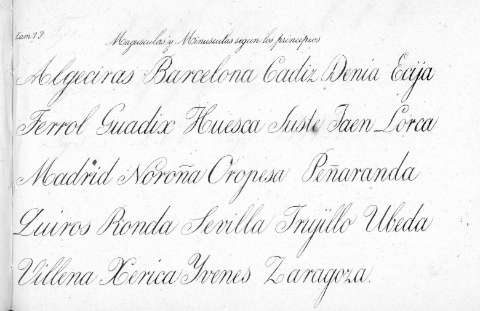 Lam 19.
Mayusculas y Minusculas segun los principios
Algeciras Barcelona Cadiz Denia Ecija
Ferrol Guadix Huesca Juste Jaen Lorca
Madrid Noroña Oropesa Peñaranda
Quiros Ronda Sevilla Trujillo Ubeda
Villena Xerica Yvenes Zaragoza.